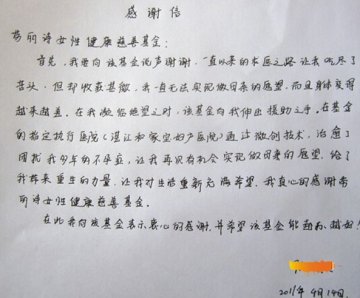 感谢信
蒂丽诗女性健康慈善基金:
首先,我要向该基金说声谢谢,一直以来的求医之路让我吃尽了
苦头,但却收获甚微,我一直无法实现做母亲的愿望,而且身体变得
越来越差。在我濒临绝望之时,该基金向我伸出援助之手。在基金
的指定执行医院(湛江和家宝妇产医院)通过微创技术,治愈了
困扰我多年的不孕症,让我再次有机会实现做母亲的愿望。给了
我带来重生的力量,让我对生活重新充满希望。我真心的感谢蒂
丽诗女性健康慈善基金。
在此我向该基金表示衷心的感谢,并希望该基金能越办越好!
2011年4月14日